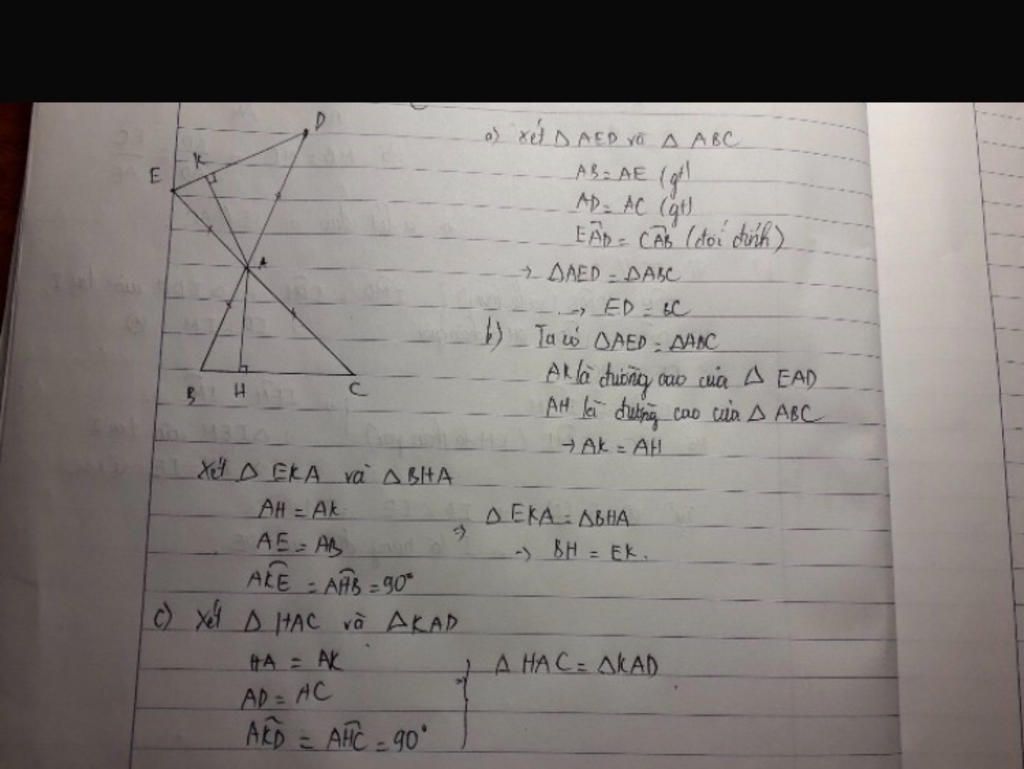 D
K
E
A
B H C
a) xét Δ AED và Δ ABC
AB = AE (gt)
AD = AC (gt)
EÂD = CÂB (đối đỉnh)
→ ΔAED = ΔABC
→ ED = BC
b) Ta có ΔAED = ΔABC
AK là đường cao của Δ EAD
AH là đường cao của Δ ABC
→ AK = AH
Xét Δ EKA và ΔBHA
AH = AK
AE = AB
AK̂E = AĤB = 90°
⇒ Δ EKA = ΔBHA
→ BH = EK.
c) Xét Δ HAC và ΔKAD
HA = AK
AD = AC
AK̂D = AĤC = 90°
⇒ Δ HAC = ΔKAD